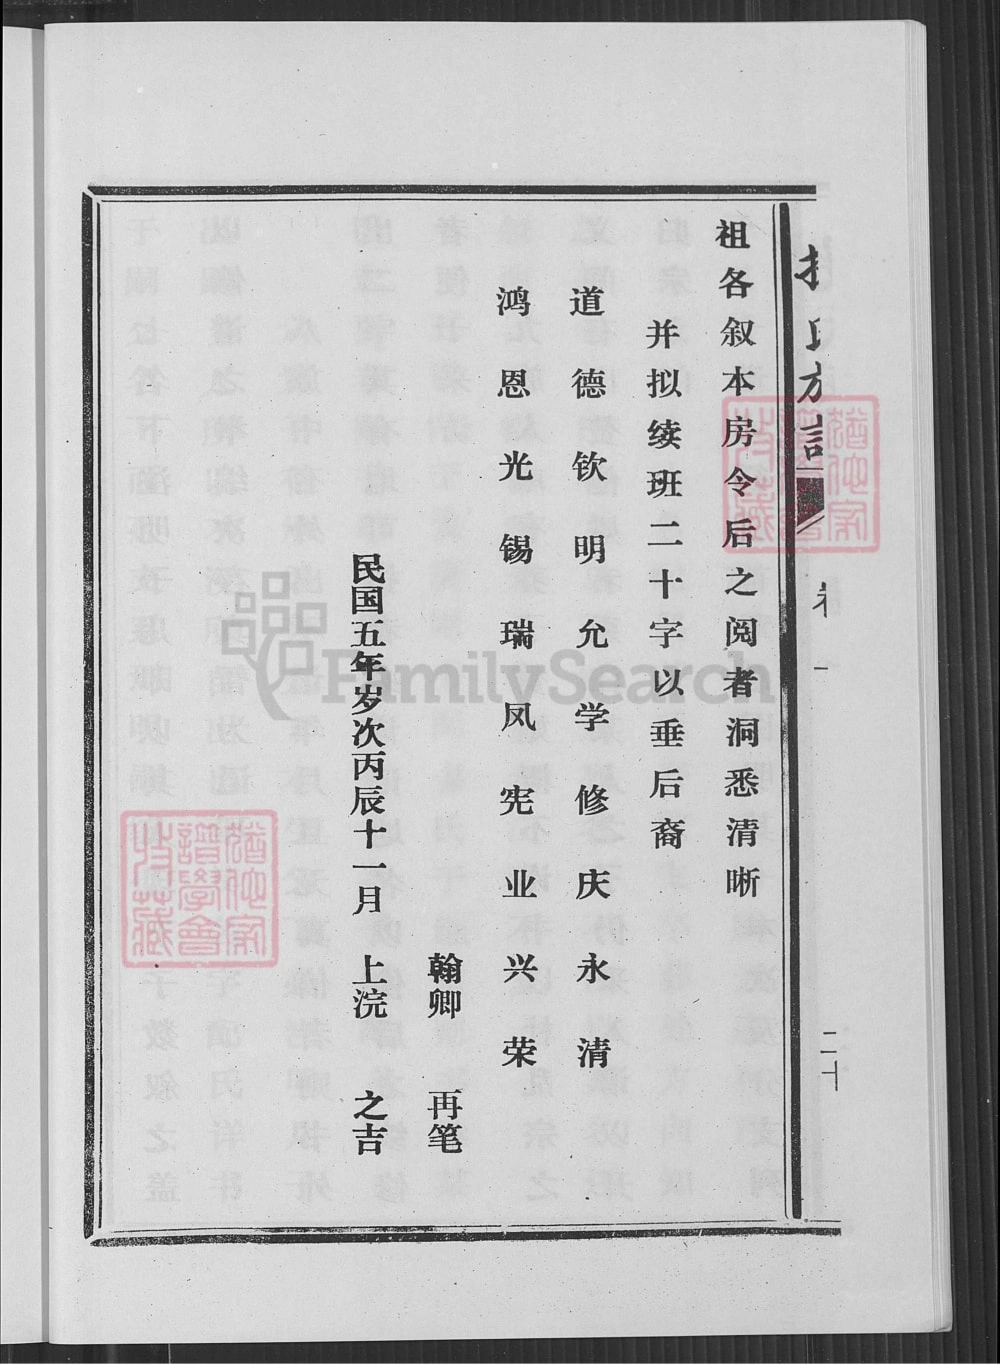 祖各叙本房令后之阅者洞悉清晰
并拟续班二十字以垂后裔
道德钦明允学修庆永清
鸿恩光锡瑞凤宪业兴荣
翰卿 再笔
民国五年岁次丙辰十一月 上浣 之吉
二十
FamilySearch